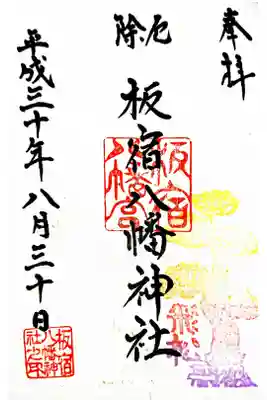 奉拝
厄除
板宿八幡神社
平成三十年八月三十日
板宿
八幡宮
板宿
八幡神
社之印